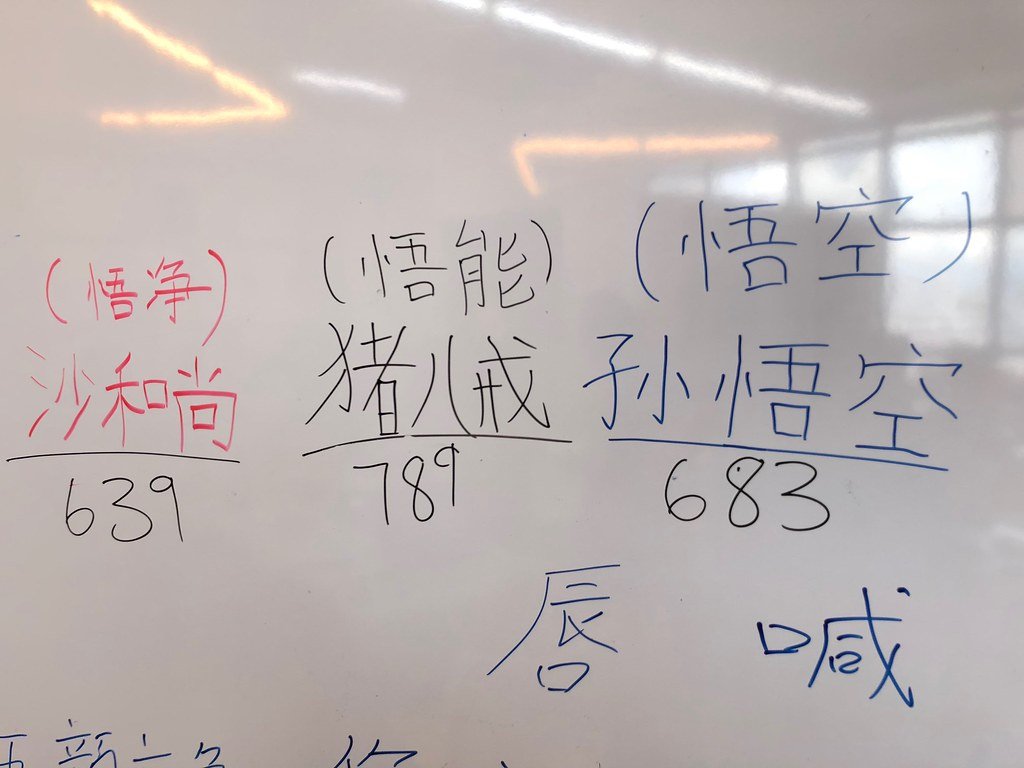 (悟净) (悟能) (悟空)
沙和尚 猪八戒 孙悟空
639 789 683
唇 喊